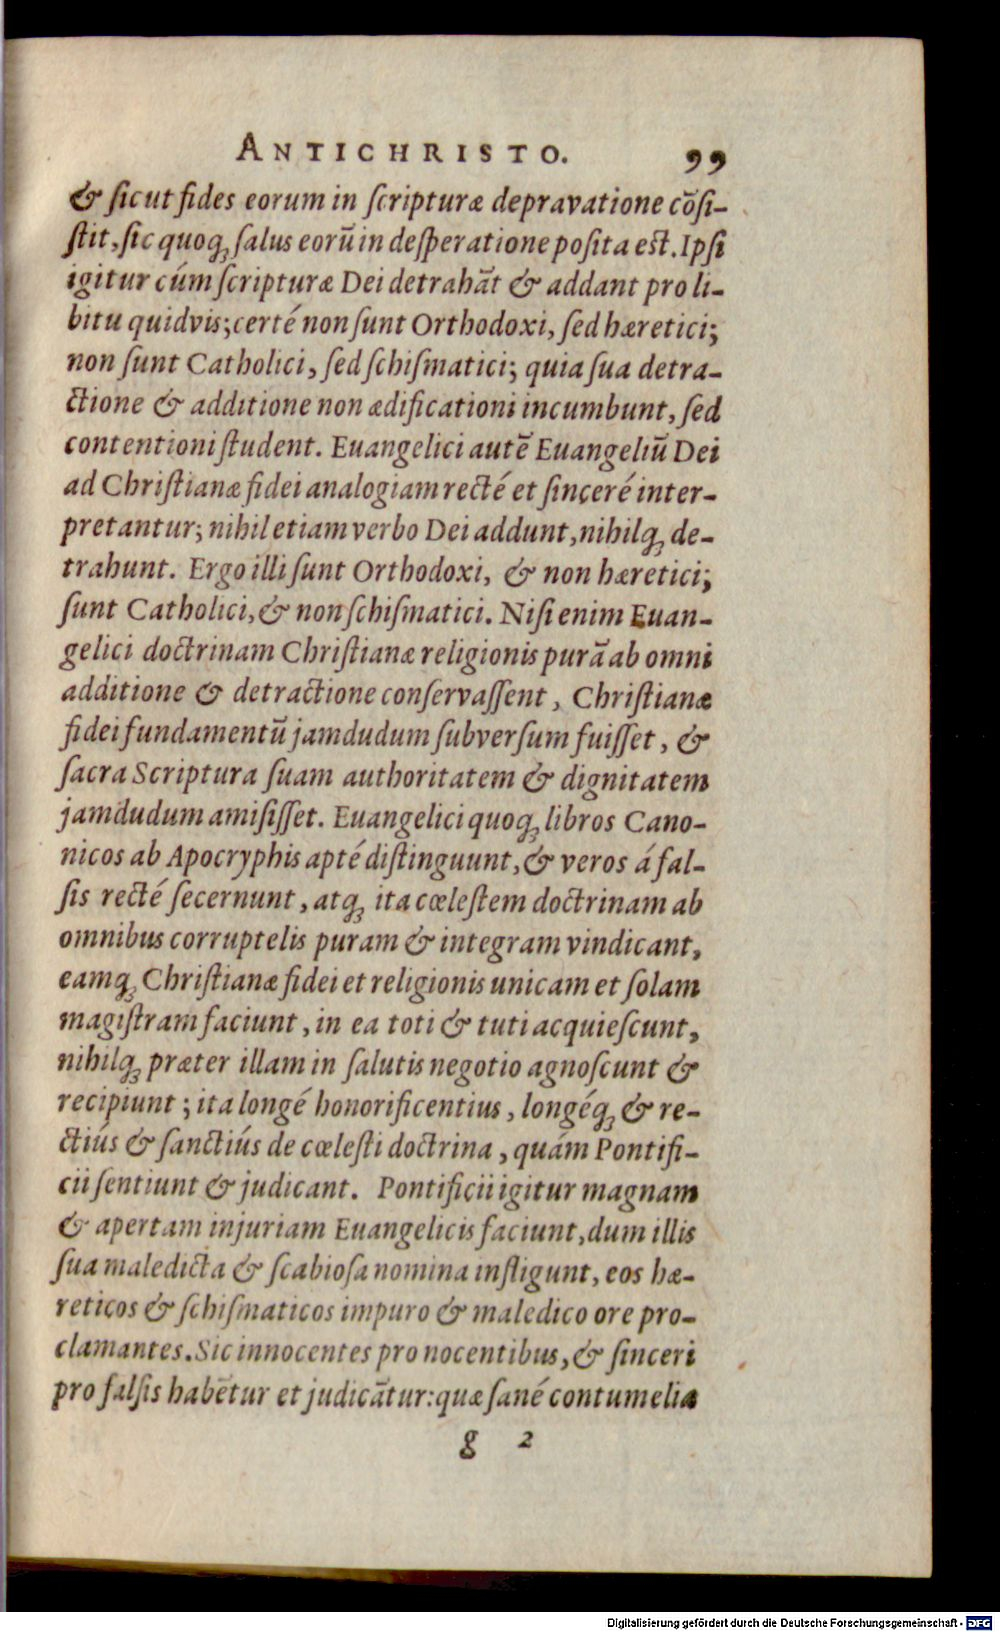 ANTICHRISTO. 99
& ſicut fides eorum in ſcripturæ depravatione cõſi-
ſtit, ſic quoq; ſalus eorũ in deſperatione poſita est. Ipſi
igitur cúm ſcripturæ Dei detrahãt & addant pro li-
bitu quidvis; certé non ſunt Orthodoxi, ſed hæretici;
non ſunt Catholici, ſed ſchiſmatici; quia ſua detra-
ctione & additione non ædificationi incumbunt, ſed
contentioni ſtudent. Euangelici autẽ Euangeliũ Dei
ad Chriſtianæ fidei analogiam recté et ſinceré inter-
pretantur; nihil etiam verbo Dei addunt, nihilq; de-
trahunt. Ergo illi ſunt Orthodoxi, & non hæretici;
ſunt Catholici, & non ſchiſmatici. Niſi enim Euan-
gelici doctrinam Chriſtianæ religionis purã ab omni
additione & detractione conſervaſſent, Chriſtianæ
fidei fundamentũ jamdudum ſubverſum fuiſſet, &
ſacra Scriptura ſuam authoritatem & dignitatem
jamdudum amiſiſſet. Euangelici quoq; libros Cano-
nicos ab Apocryphis apté diſtinguunt, & veros á fal-
ſis recté ſecernunt, atq; ita cœleſtem doctrinam ab
omnibus corruptelis puram & integram vindicant,
eamq; Chriſtianæ fidei et religionis unicam et ſolam
magiſtram faciunt, in ea toti & tuti acquieſcunt,
nihilq; præter illam in ſalutis negotio agnoſcunt &
recipiunt; ita longé honorificentius, longéq; & re-
ctiús & ſanctiús de cœleſti doctrina, quám Pontifi-
cii ſentiunt & judicant. Pontificii igitur magnam
& apertam injuriam Euangelicis faciunt, dum illis
ſua maledicta & ſcabioſa nomina infligunt, eos hæ-
reticos & ſchiſmaticos impuro & maledico ore pro-
clamantes. Sic innocentes pro nocentibus, & ſinceri
pro falſis habẽtur et judicãtur: quæ ſané contumelia
g 2
Digitalisierung gefördert durch die Deutsche Forschungsgemeinschaft - DFG